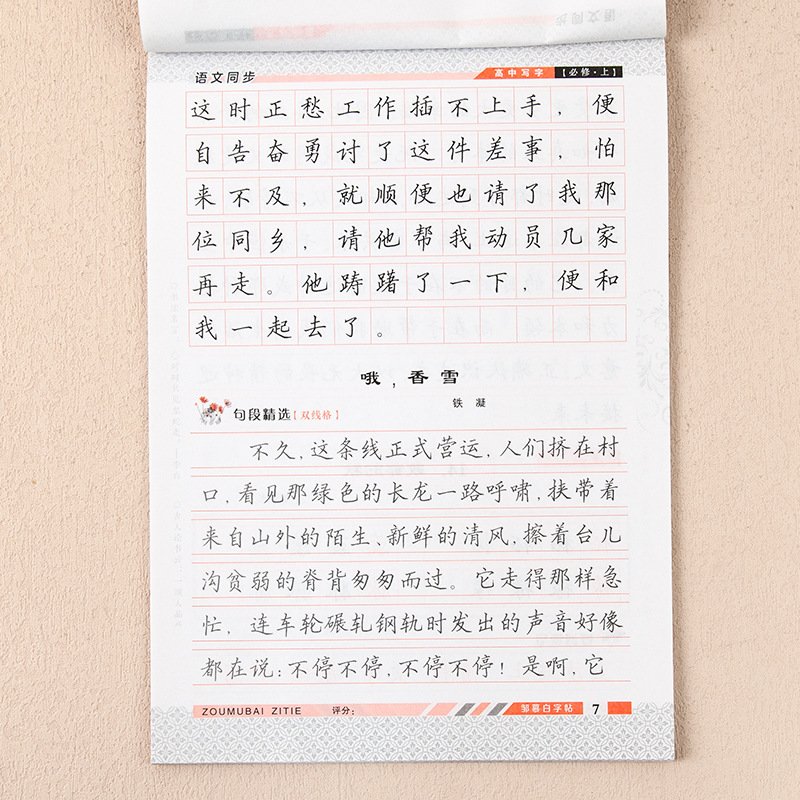 语文同步 高中写字 【必修·上】
这时正愁工作插不上手，便
自告奋勇讨了这件差事，怕
来不及，就顺便也请了我那
位同乡，请他帮我动员几家
再走。他踌躇了一下，便和
我一起去了。
哦，香雪
铁 凝
句段精选【双线格】
不久，这条线正式营运，人们挤在村
口，看见那绿色的长龙一路呼啸，挟带着
来自山外的陌生、新鲜的清风，擦着台儿
沟贫弱的脊背匆匆而过。它走得那样急
忙，连车轮碾轧钢轨时发出的声音好像
都在说：不停不停，不停不停！是啊，它
ZOUMUBAI ZITIE 评分： 邹慕白字帖 7